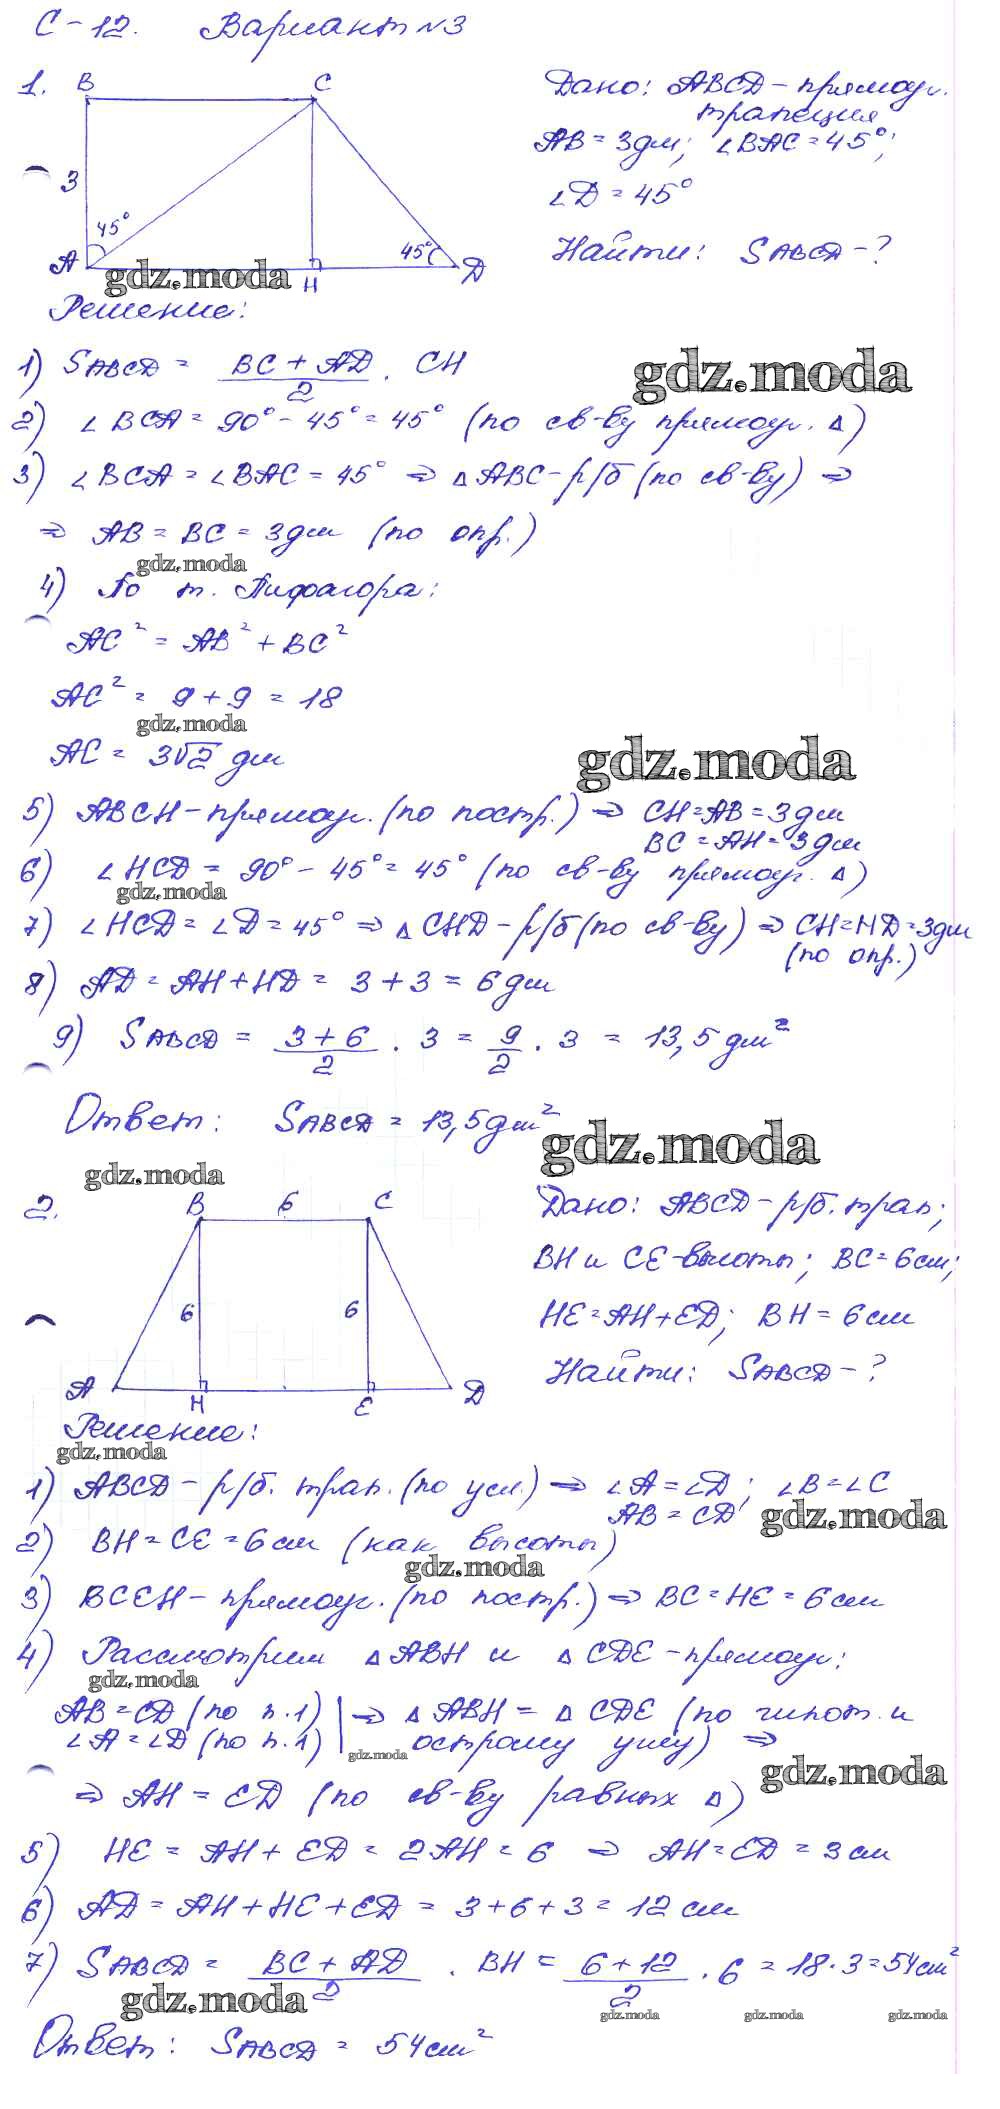 С-12. Вариант №3
1. B C
3
45°
45°
A H D
Дано: ABCD - прямоуг.
трапеция
AB = 3дм; ∠BAC = 45°;
∠D = 45°
Найти: SABCD - ?
gdz.moda
Решение:
1) SABCD = (BC + AD)/2 · CH
gdz.moda
2) ∠BCA = 90° - 45° = 45° (по св-ву прямоуг. Δ)
3) ∠BCA = ∠BAC = 45° ⇒ ΔABC - р/б (по св-ву) ⇒
⇒ AB = BC = 3дм (по опр.)
gdz.moda
4) По т. Пифагора:
AC² = AB² + BC²
AC² = 9 + 9 = 18
gdz.moda
AC = 3√2 дм
gdz.moda
5) ABCH - прямоуг. (по постр.) ⇒ CH = AB = 3дм
BC = AH = 3дм
6) ∠HCD = 90° - 45° = 45° (по св-ву прямоуг. Δ)
gdz.moda
7) ∠HCD = ∠D = 45° ⇒ ΔCHD - р/б (по св-ву) ⇒ CH = HD = 3дм
(по опр.)
8) AD = AH + HD = 3 + 3 = 6дм
9) SABCD = (3 + 6)/2 · 3 = 9/2 · 3 = 13,5дм²
Ответ: SABCD = 13,5дм²
gdz.moda
gdz.moda
2. B 6 C
6 6
A H E D
Дано: ABCD - р/б. трап;
BH и CE - высоты; BC = 6см;
HE = AH + ED; BH = 6см
Найти: SABCD - ?
Решение:
gdz.moda
1) ABCD - р/б. трап. (по усл.) ⇒ ∠A = ∠D; ∠B = ∠C
AB = CD
gdz.moda
2) BH = CE = 6см (как высоты)
gdz.moda
3) BCEH - прямоуг. (по постр.) ⇒ BC = HE = 6см
4) Рассмотрим ΔABH и ΔCDE - прямоуг:
gdz.moda
AB = CD (по п.1) | ⇒ ΔABH = ΔCDE (по гипот. и
∠A = ∠D (по п.1) | острому углу) ⇒
gdz.moda
gdz.moda
⇒ AH = ED (по св-ву равных Δ)
5) HE = AH + ED = 2AH = 6 ⇒ AH = ED = 3см
6) AD = AH + HE + ED = 3 + 6 + 3 = 12см
7) SABCD = (BC + AD)/2 · BH = (6 + 12)/2 · 6 = 18 · 3 = 54см²
gdz.moda
gdz.moda gdz.moda gdz.moda
Ответ: SABCD = 54см²